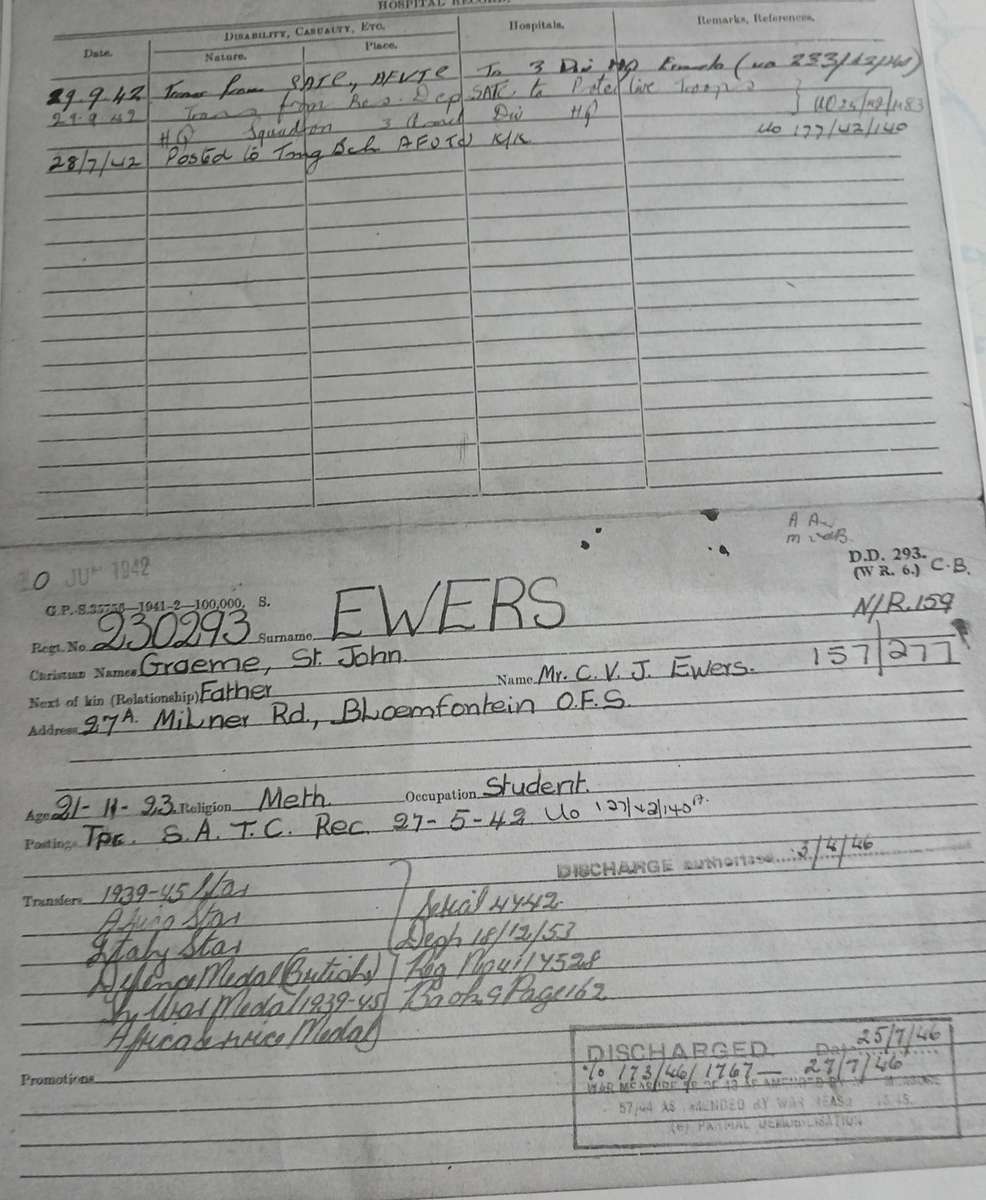 HOSPITAL RECORD
DISABILITY, CASUALTY, ETC. Hospitals. Remarks, References.
Date. Nature. Place.
29.9.42 Trans from SATC, AFVTC To 3 Div HQ (uo 233/42/
29.9.42 Trans from Res. Dep SATC. to Protective Troops } UO 25/42/1183
HQ Squadron 3 Armd Div HQ
28/7/42 Posted to Trng Sch AFVTD K/K Uo 177/42/140
0 JUN 1942
D.D. 293.
(W R. 6.) C.B.
G.P.-S.35756—1941-2—100,000. S.
N/R.159
Regt. No. 230293 Surname EWERS
Christian Names Graeme, St. John. 157/277
Next of kin (Relationship) Father Name Mr. C. V. J. Ewers.
Address 27A. Milner Rd., Bloemfontein O.F.S.
Age 21-11-23. Religion Meth. Occupation Student.
Postings Tpr. S.A.T.C. Rec. 27-5-42 Uo 127/42/140
DISCHARGE authorised 3/4/46
Transfers 1939-45 Star
Africa Star Serial 4442
Italy Star Desp 18/12/53
Defence Medal (British) Reg No
The War Medal 1939-45 Book 9 Page 162
Africa Service Medal
Promotions
DISCHARGED Date 25/7/46
% 173/46/1767 — 27/7/46
WAR MEASURE AS AMENDED BY MEASURE
57/44 AS AMENDED BY WAR MEAS
(6) DEMOBILISATION